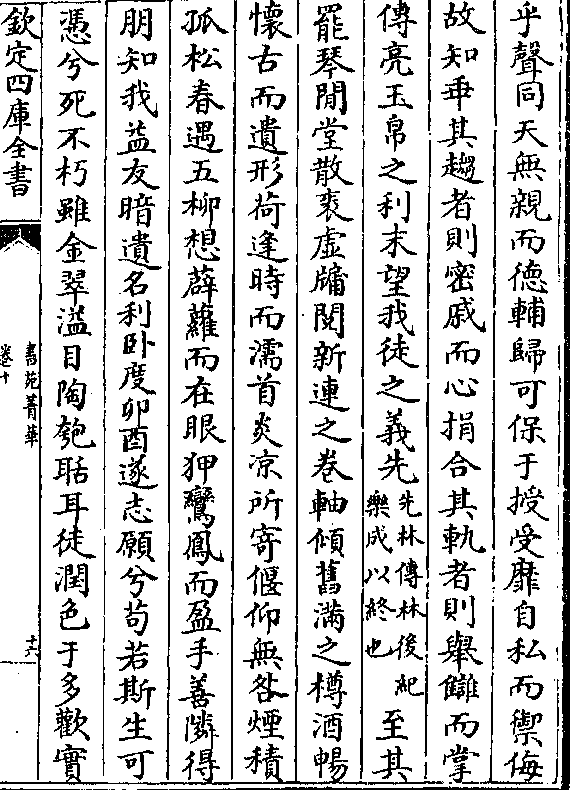 乎聲同天無親而德輔歸可保于授受靡自私而禦侮
故知乖其趨者則密戚而心捐合其軌者則舉讎而掌
傅亮玉帛之利末望我徒之義先先林傳林後紀樂成以終也至其
罷琴閒堂散袠虛牖閱新連之卷軸傾舊滿之樽酒暢
懷古而遺形荷逢時而濡首炎凉所寄偃仰無咎煙積
孤松春遇五柳想薜蘿而在眼狎鸞鳳而盈手善隣得
朋知我益友暗遺名利卧度卯酉遂志願兮苟若斯生可
憑兮死不朽雖金翠溢目陶匏聒耳徒潤色于多歡實
欽定四庫全書
書苑菁華
卷十
十六